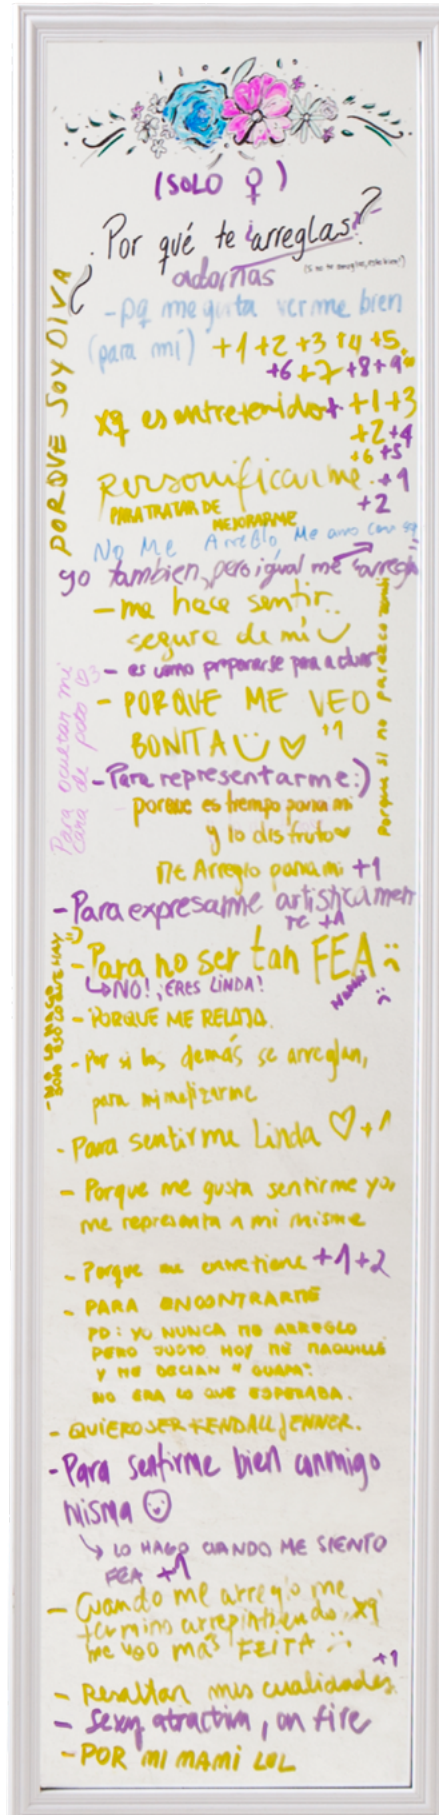 (SOLO ♀)
¿Por qué te arreglas?
adornas
(si no te arreglas, está bien!)
PORQUE SOY DIVA
- pq me gusta verme bien
(para mí) +1 +2 +3 +4 +5
+6 +7 +8 +9
xq es entretenido + +1 +3
+2 +4
+6 +5
Personificarme. +1
+2
PARA TRATAR DE
MEJORARME
No Me Arreglo Me amo como soy
yo tambien, pero igual me arreglo
- me hace sentir
segura de mi
- es como prepararse para actuar
Porque si no parezco zombi
- PORQUE ME VEO
BONITA ♡ +1
Para ocultar mi
cara de poto
- Para representarme :)
porque es tiempo para mi
y lo disfruto
Me Arreglo para mi +1
- Para expresarme artísticamen
te +1
- Para no ser tan FEA :(
↳ NO! ¡ERES LINDA!
- PORQUE ME RELAJA.
- Por si los demás se arreglan,
para mimetizarme
- Para sentirme Linda ♡ +1
- Porque me gusta sentirme yo,
me representa a mi misme
- Porque me entretiene +1 +2
- PARA ENCONTRARME
PD: YO NUNCA ME ARREGLO
PERO JUSTO HOY ME MAQUILLÉ
Y ME DECIAN "GUAPA".
NO ERA LO QUE ESPERABA.
- QUIERO SER KENDALL JENNER.
- Para sentirme bien conmigo
misma
↳ LO HAGO CUANDO ME SIENTO
FEA +1
- Cuando me arreglo me
termino arrepintiendo, xq
me veo más FEITA :(
+1
- Resaltar mis cualidades.
- Sexy atractiva, on fire
- POR MI MAMI LOL